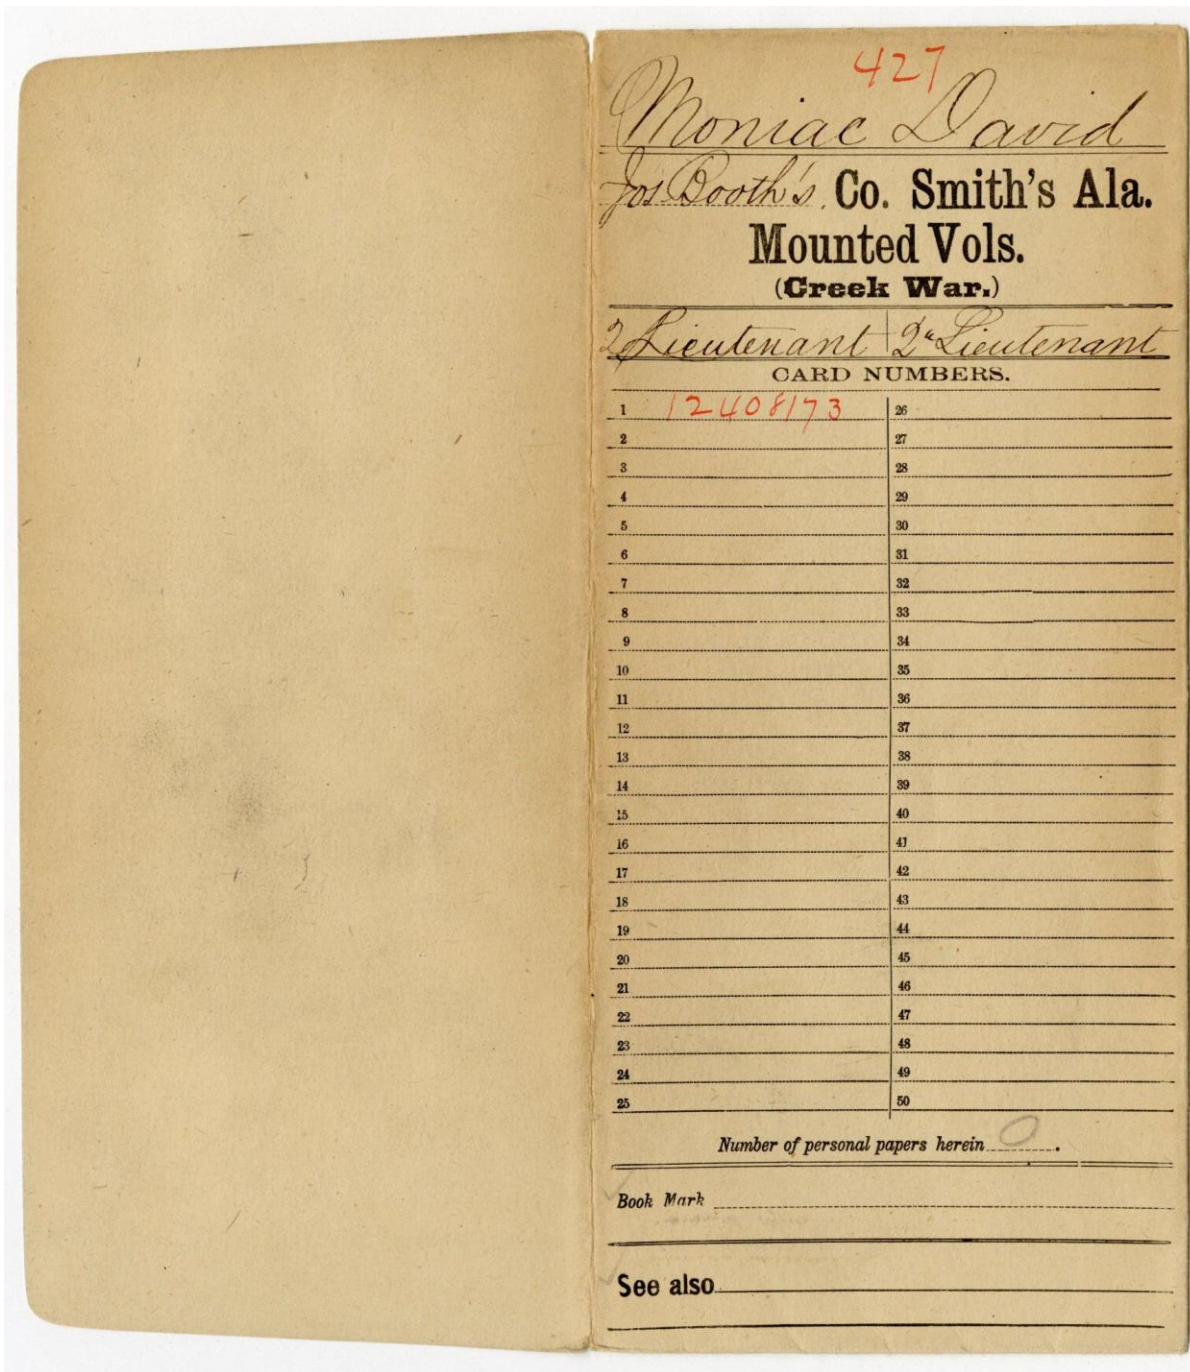 427
Moniac David
Jos Booth's Co. Smith's Ala.
Mounted Vols.
(Creek War.)
2 Lieutenant 2" Lieutenant
CARD NUMBERS.
1 12408173 26
2 27
3 28
4 29
5 30
6 31
7 32
8 33
9 34
10 35
11 36
12 37
13 38
14 39
15 40
16 41
17 42
18 43
19 44
20 45
21 46
22 47
23 48
24 49
25 50
Number of personal papers herein 0.
Book Mark
See also